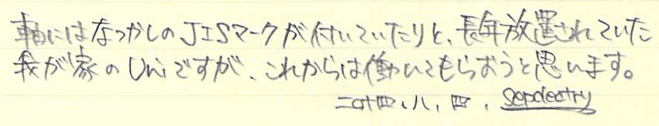 軸にはなつかしのJISマークが付いていたりと、長年放置されていた
我が家のひんですが、これからは働いてもらおうと思います。
二十四、八、四、